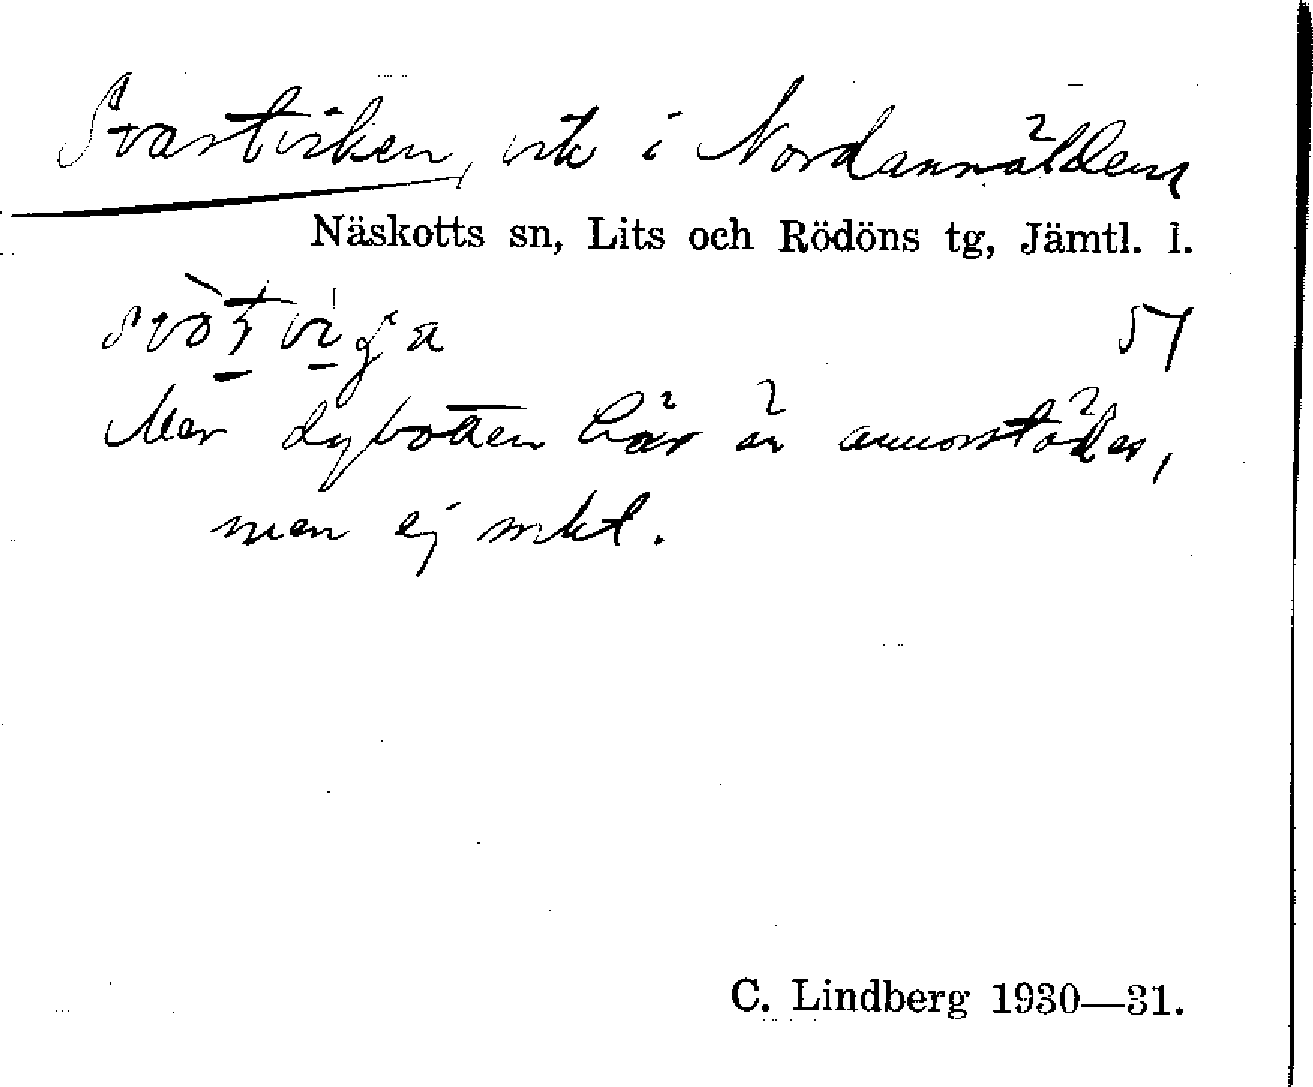 Svartviken, vik i Nordannälden
Näskotts sn, Lits och Rödöns tg, Jämtl. l.
57
Mer dybotten här än annorstädes,
men ej mkt.
C. Lindberg 1930—31.